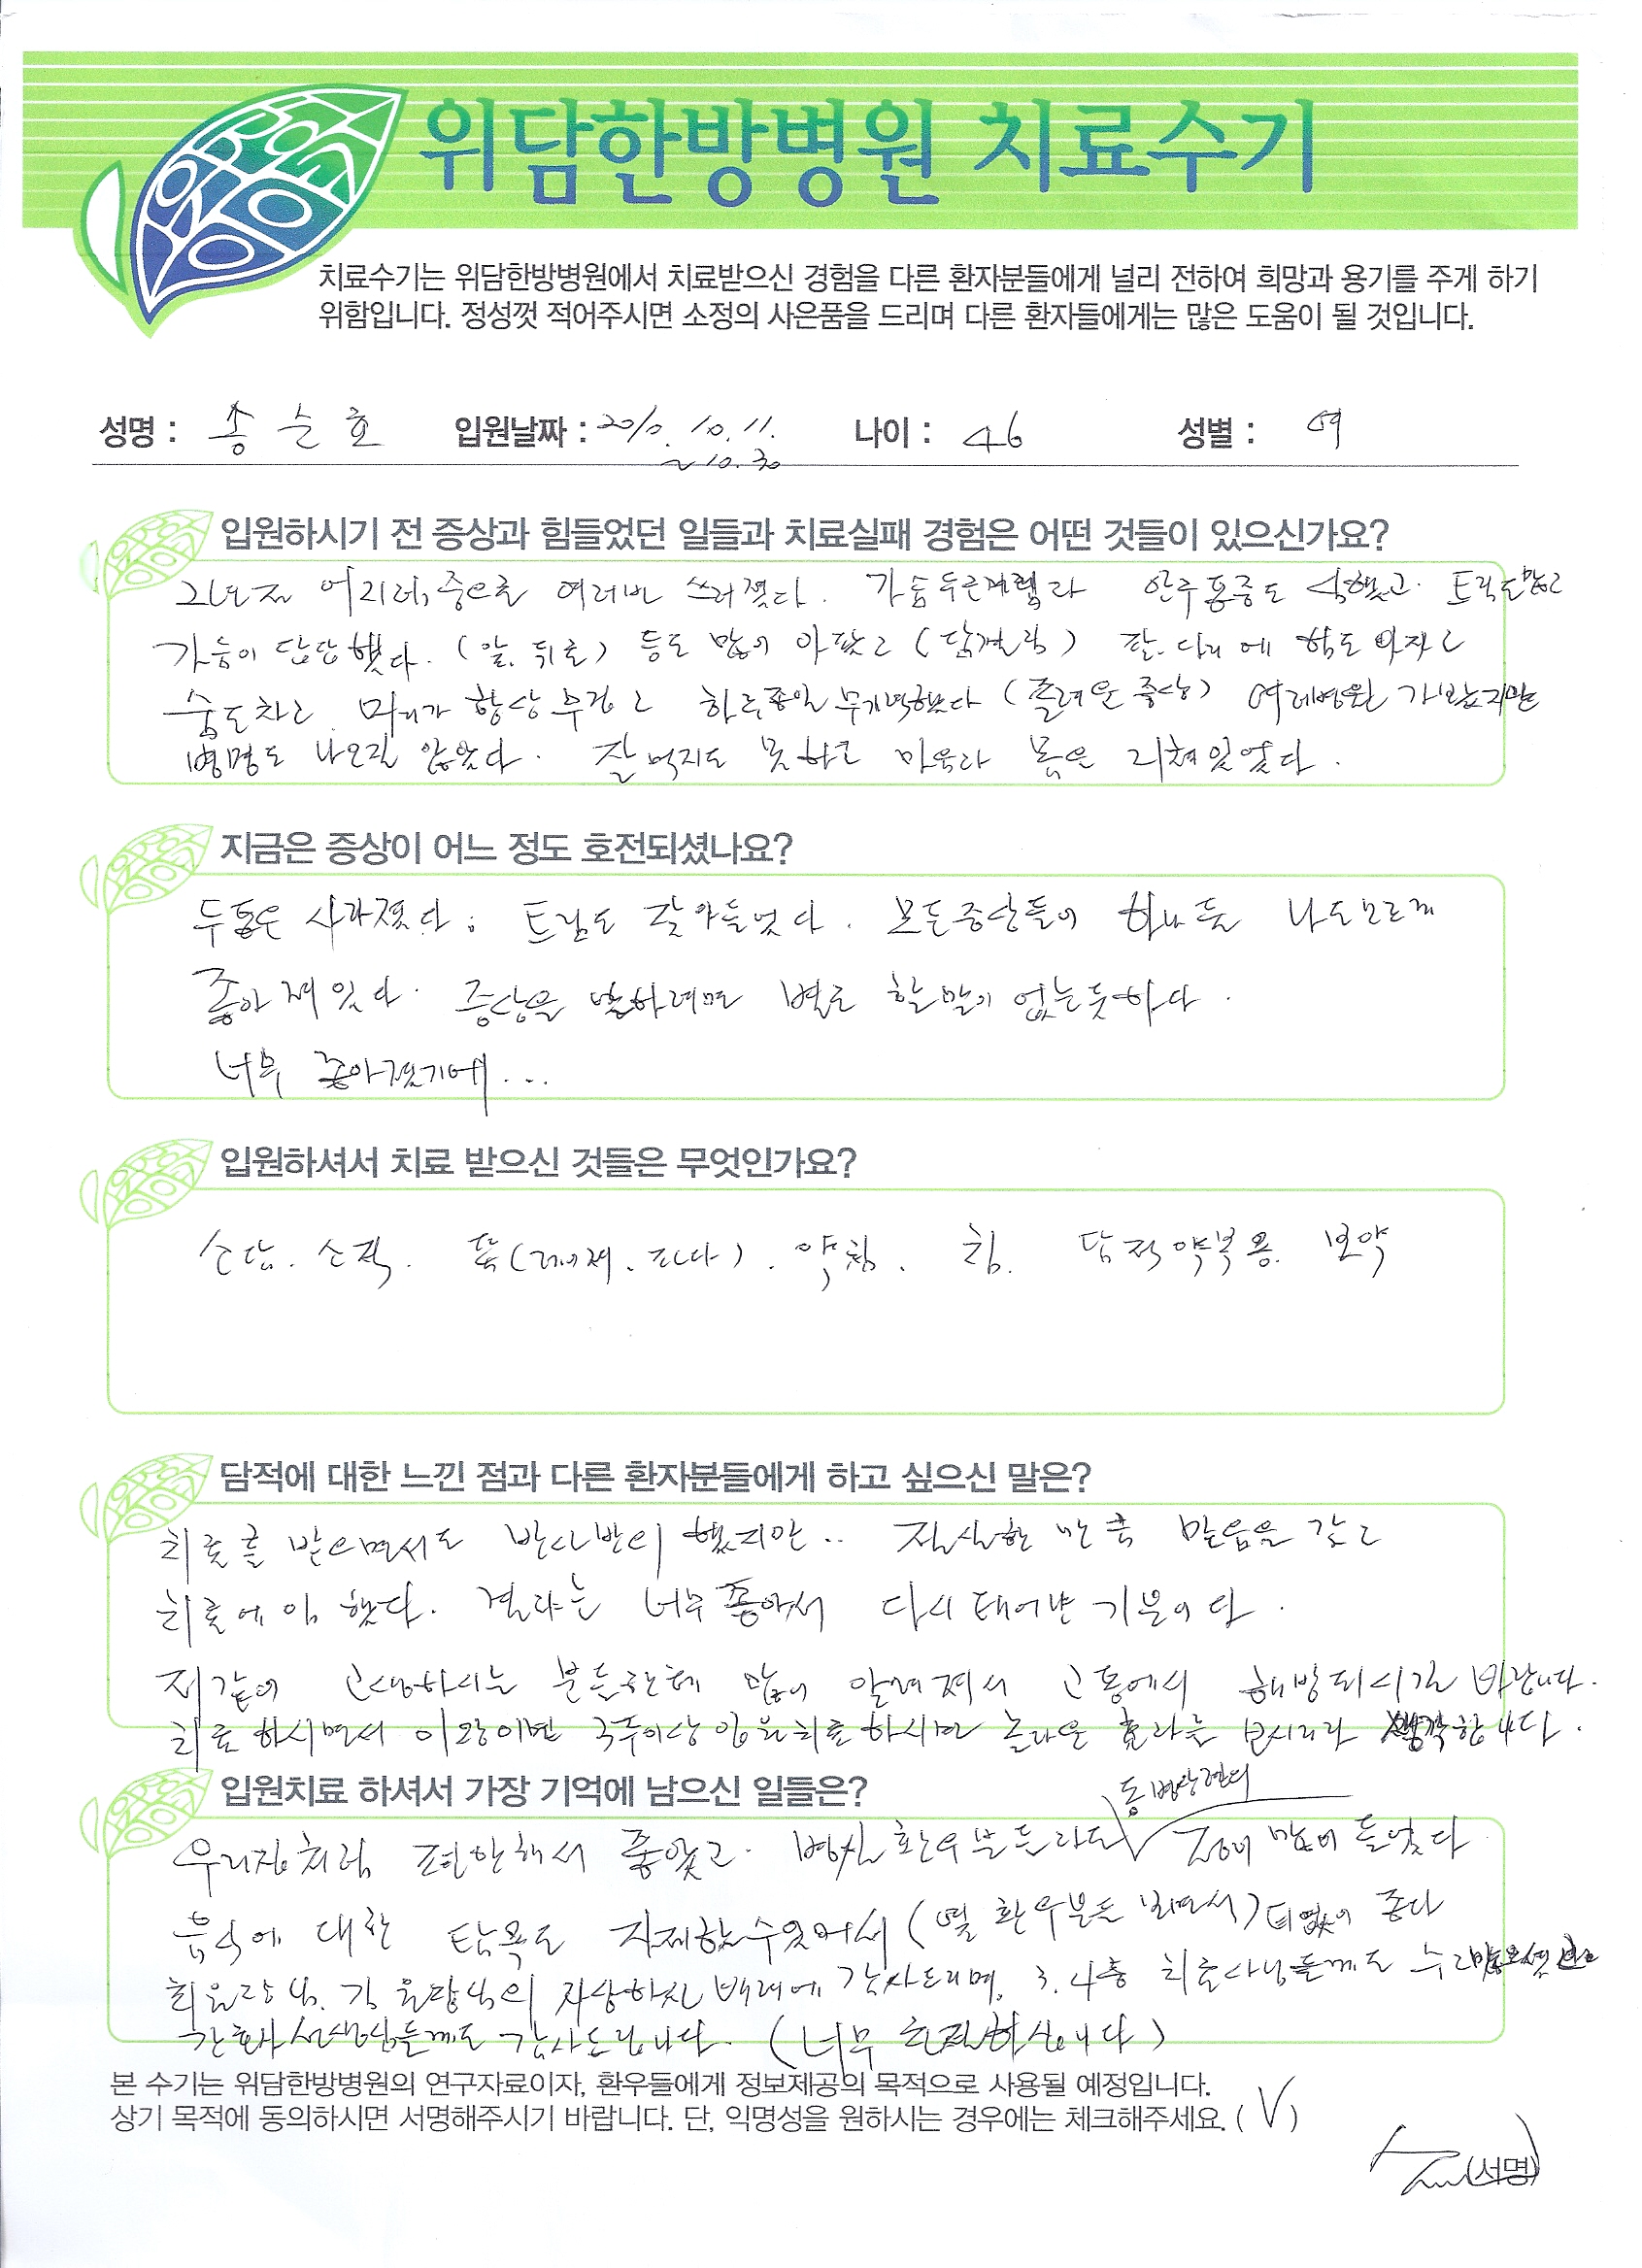 위담한방병원 치료수기
치료수기는 위담한방병원에서 치료받으신 경험을 다른 환자분들에게 널리 전하여 희망과 용기를 주게 하기
위함입니다. 정성껏 적어주시면 소정의 사은품을 드리며 다른 환자들에게는 많은 도움이 될 것입니다.
성명 : 송순호 입원날짜 : 2010. 10. 11. 나이 : 46 성별 : 여
~ 10. 30
입원하시기 전 증상과 힘들었던 일들과 치료실패 경험은 어떤 것들이 있으신가요?
그년전 어지러움증으로 여러번 쓰러졌다. 가슴두근거림과 안구통증도 심했고. 트림도많고
가슴이 답답했다. (앞.뒤로) 등도 많이 아팠고 (담결림) 팔.다리에 힘도 빠지고
숨도차고 머리가 항상 무겁고 하루종일 무기력했다 (졸려운 증상) 여러병원 가봤지만
병명도 나오질 않았다. 잘 먹지도 못하고 마음과 몸은 지쳐있었다.
지금은 증상이 어느 정도 호전되셨나요?
두통은 사라졌다. 트림도 잦아들었다. 모든증상들이 하나둘 나도모르게
좋아져있다. 증상을 말하려면 별로 할말이 없는듯하다.
너무 좋아졌기에...
입원하셔서 치료 받으신 것들은 무엇인가요?
소담. 소적. 뜸(레이저. 파다). 약침. 침. 담적약복용. 보약
담적에 대한 느낀 점과 다른 환자분들에게 하고 싶으신 말은?
치료를 받으면서도 반신반의 했지만.. 진실한 만큼 믿음을 갖고
치료에 임했다. 결과는 너무 좋아서 다시 태어난 기분이다.
저같이 고생하시는 분들한테 많이 알려져서 고통에서 해방되시길 바랍니다.
치료하시면서 이왕이면 국주이상 입원치료하시면 놀라운 효과를 보시리라 생각합니다.
입원치료 하셔서 가장 기억에 남으신 일들은?
동병상련의
우리집처럼 편안해서 좋았고. 병실 환우분들과도 정이 많이 들었다
음식에 대한 탐욕도 자제할수있어서 (옆 환우분들 보면서) 더없이 좋다
최원장님. 강원장님의 자상하신 배려에 감사드리며, 3.4층 치료사님들께도 수고많으셨고
간호사선생님들께도 감사드립니다. (너무 친절하십니다)
본 수기는 위담한방병원의 연구자료이자, 환우들에게 정보제공의 목적으로 사용될 예정입니다.
상기 목적에 동의하시면 서명해주시기 바랍니다. 단, 익명성을 원하시는 경우에는 체크해주세요. ( V )
(서명)